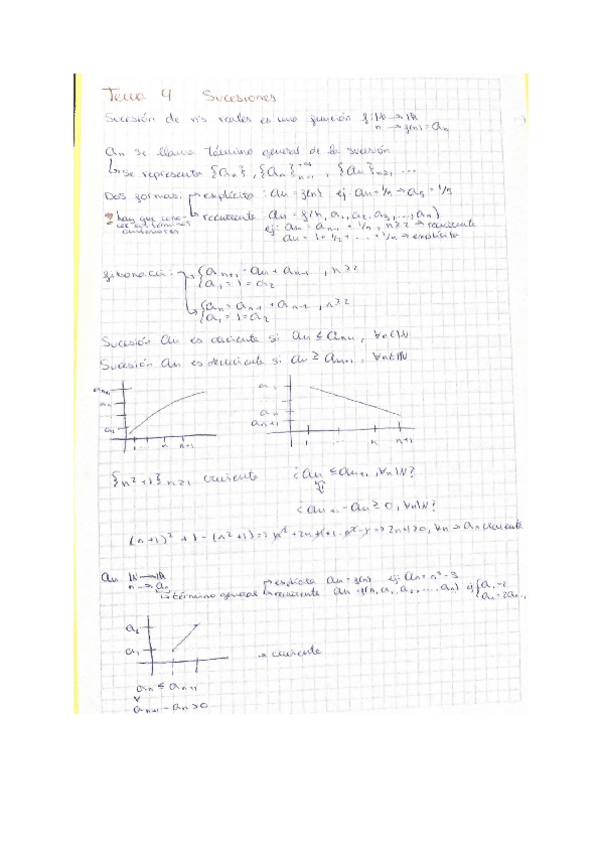 Tema 4 Sucesiones
Sucesión de nos reales es una función f: ℕ → ℝ
n → f(n) = an
an se llama término general de la sucesión
↳ se representa {an}, {an}+∞n=1, {an}n≥1, ...
Dos formas: explícita: an = f(n) ej: an = 1/n → a5 = 1/5
recurrente an = f(n, a1, a2, a3, ..., an)
hay que cono-
cer los términos
anteriores
ej: an = an-1 + 1/n, n≥2 → recurrente
an = 1 + 1/2 + ... + 1/n → explícita
fibonacci: {an+1 = an + an-1, n≥2
a1 = 1 = a2
{an = an-1 + an-2, n≥2
a1 = 1 = a2
Sucesión an es creciente si an ≤ an+1, ∀n∈ℕ
Sucesión an es decreciente si an ≥ an+1, ∀n∈ℕ
an+1
an
a1
1 ... n n+1
a1
an
an+1
1 ... n n+1
{n²+1}n≥1 creciente ¿an ≤ an+1, ∀n∈ℕ?
¿an+1 - an ≥ 0, ∀n∈ℕ?
(n+1)² + 1 - (n²+1) => n² + 2n + 1 + 1 - n² - 1 => 2n+1 > 0, ∀n → an creciente
an ℕ → ℝ
n → an
explícita an = f(n) ej: an = n² - 3
↳ término general recurrente an = f(n, a1, a2, ..., an) ej {a1 = 2
an = 2an-1
a2
a1
→ creciente
an ≤ an+1
an+1 - an > 0